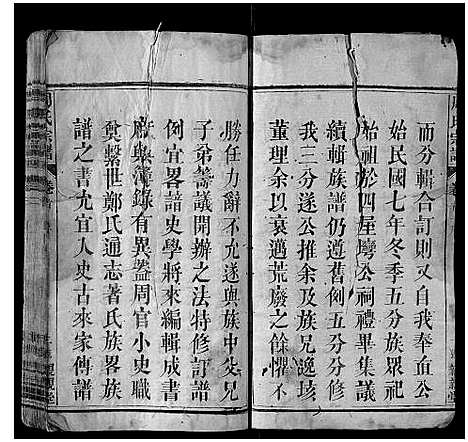 而分輯合訂則又甘奉面公
始民國七年冬季五分族眾祀
始祖於四屋塆公祠禮畢集議
續輯族譜仍遵舊例五分分修
我三分遂公推余及族兄逸垓
董理余以衰邁荒廢之餘懼不
勝任力辭不允遂與族中父兄
子弟籌議開辦之法特修訂譜
例宜畧諳史學將來編輯成書
厥與簿錄有異蓋周官小史職
奠繫世鄭氏通志著氏族畧族
譜之書尤宜人史古來家傳譜
周氏宗譜
卷首